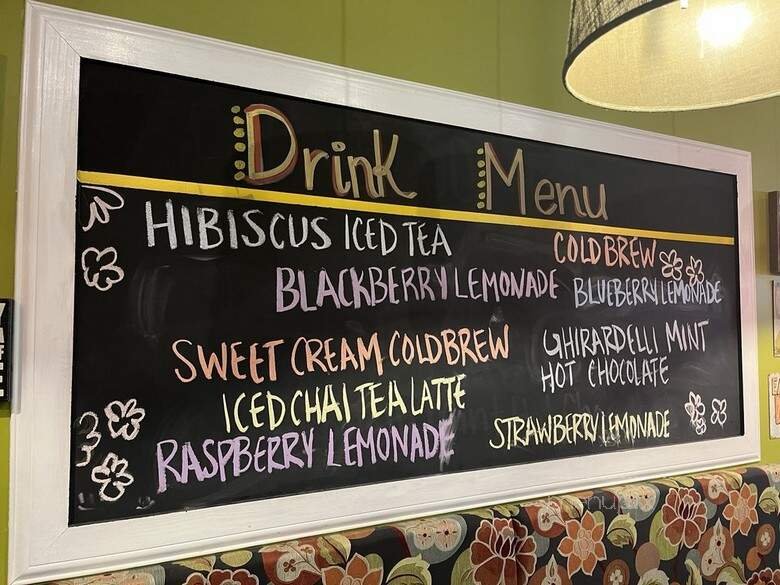 Drink Menu
HIBISCUS ICED TEA
COLD BREW
BLACKBERRY LEMONADE
BLUEBERRY LEMONADE
SWEET CREAM COLD BREW
GHIRARDELLI MINT
HOT CHOCOLATE
ICED CHAI TEA LATTE
STRAWBERRY LEMONADE
RASPBERRY LEMONADE